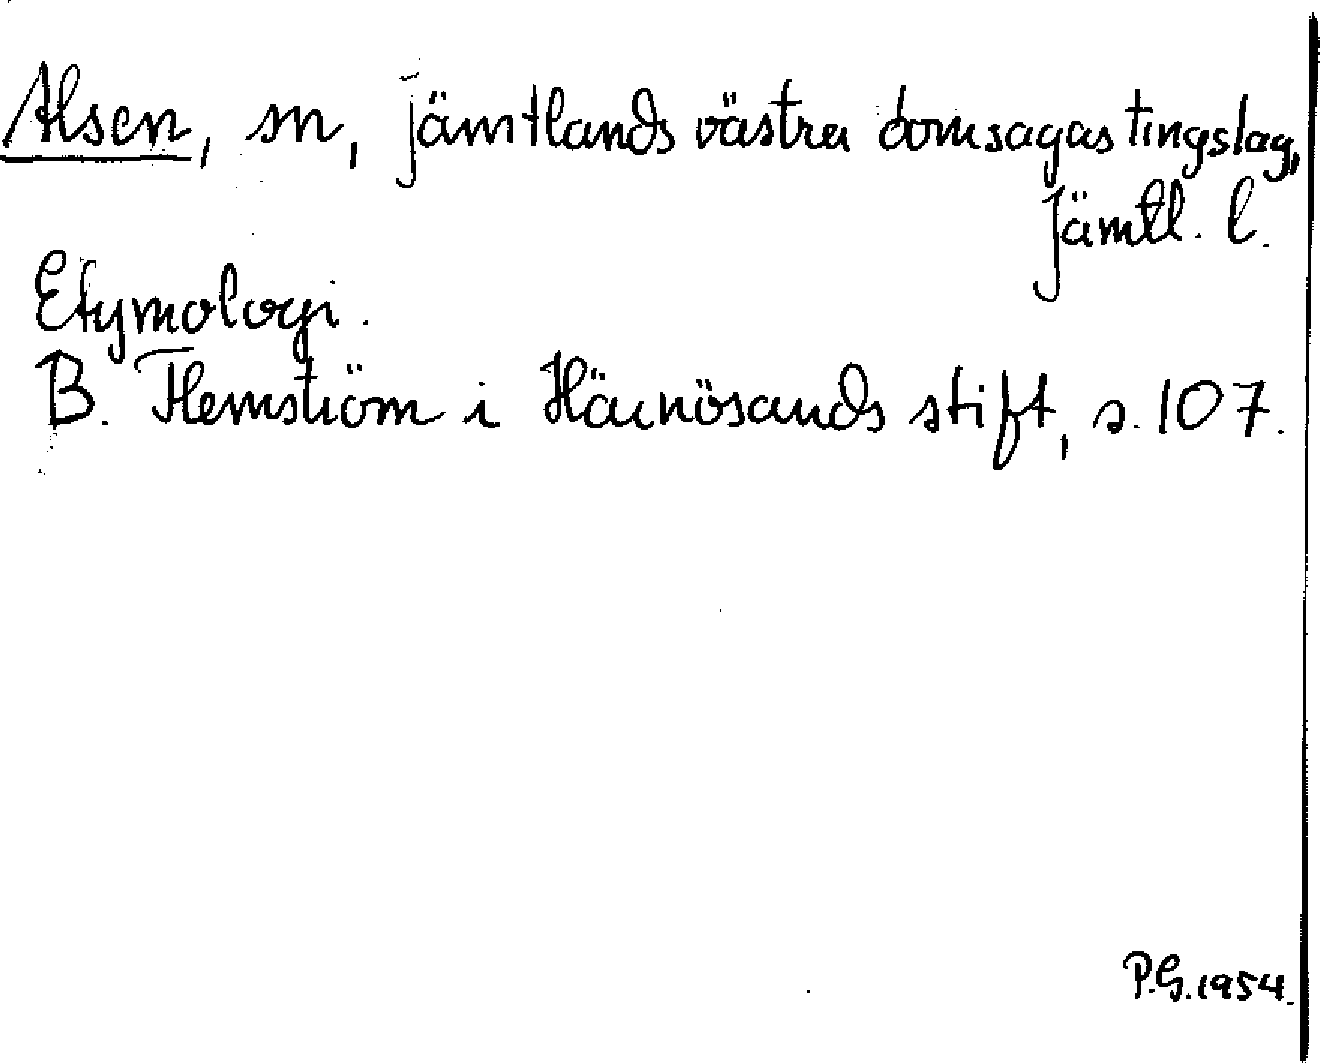 Alsen, sn, Jämtlands västra domsagas tingslag,
Jämtl. l.
Etymologi.
B. Flemström i Härnösands stift, s. 107.
P.G. 1954.